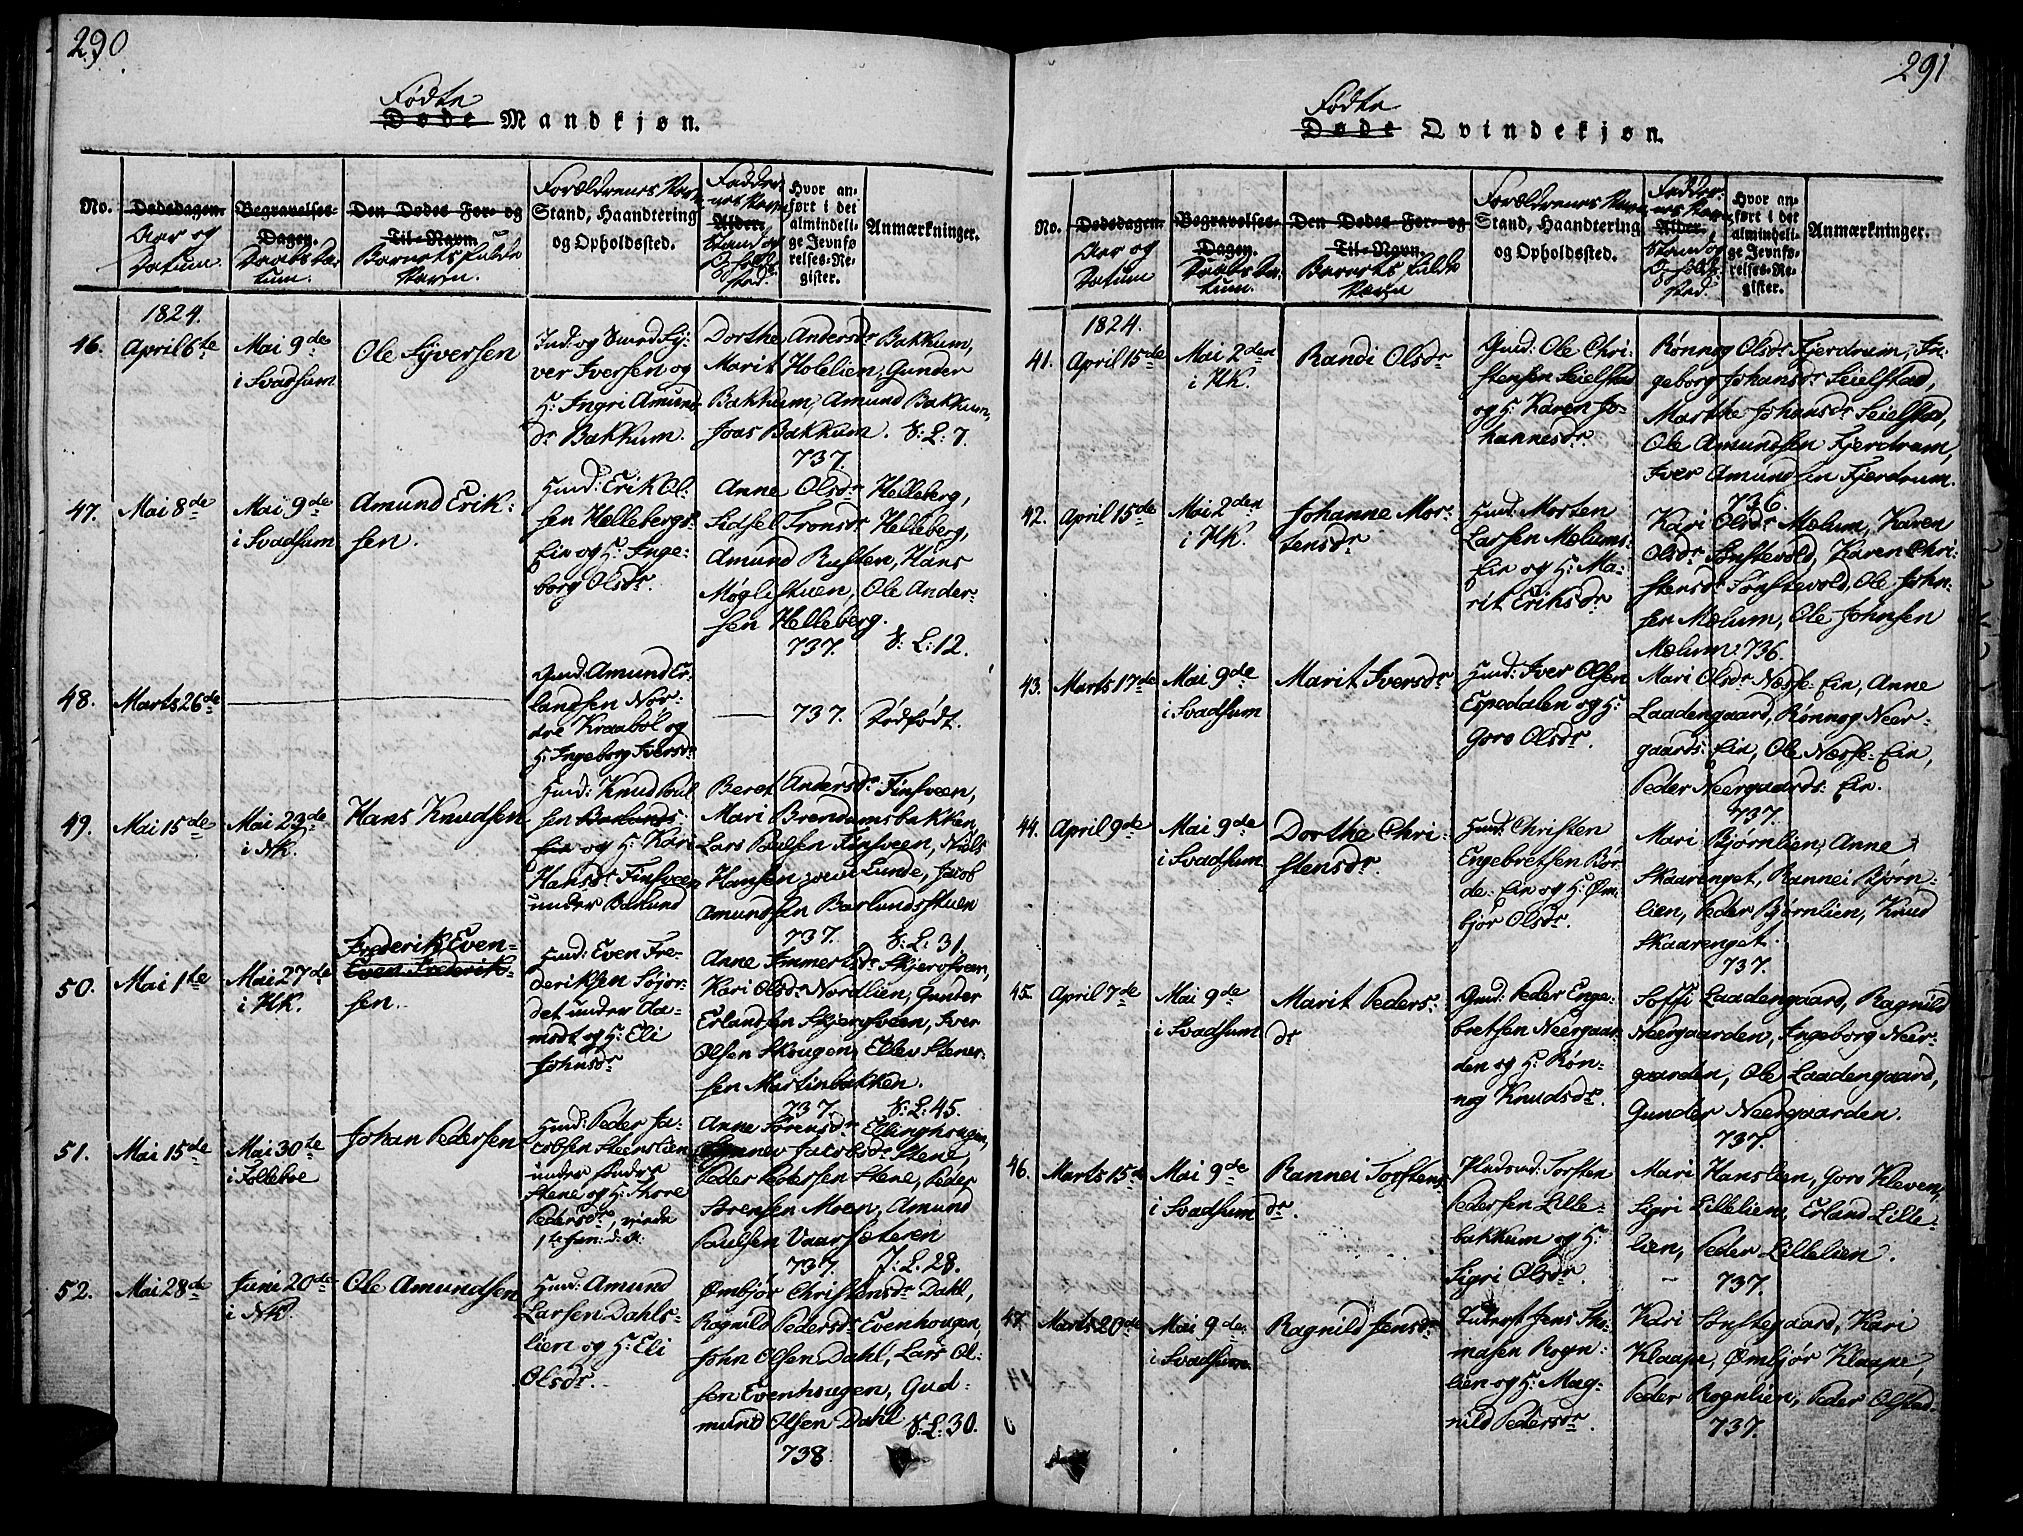 290
Fødte
Døde Mandkjøn.
No.
Dødsdagen.
Aar og
Datum.
Begravelses-
Dagen.
Daabs Da-
tum.
Den Dødes For- og
Til-Navn.
Barnets fulde
Navn.
Forældrenes Navn
Stand, Haandtering
og Opholdssted.
Faddernes Navn
Alder.
Stand og
Opholdssted.
Hvor an-
ført i det
almindeli-
ge Jevnfø
relses-Re-
gister.
Anmærkninger.
1824.
46.
April 6te
Mai 9de
i Svadsum
Ole Syversen
Ind: og Smed Sy-
ver Iversen og
H: Ingri Amunds
dr Bakkum.
Dorthe Andersdr Bakkum,
Marit Holelien, Gunder
Bakkum, Amund Bakkum,
Joas Bakkum. S: L: 7.
737.
47.
Mai 8de
Mai 9de
i Svadsum
Amund Erik-
sen.
Huusd: Erik Ol-
sen Hellebergs-
Eie og H: Inge-
borg Olsdr.
Anne Olsdr Helleberg,
Sidsel Fronsdr Helleberg,
Amund Rusten, Hans
Møglistuen, Ole Ander-
sen Helleberg.
737. S: L: 12.
48.
Marts 26de
Gmd: Amund Er-
landsen Nør-
dre Kraabøl og
H: Ingeborg Iversdr
737. Dødfødt.
49.
Mai 15de
Mai 23de
i NK.
Hans Knudsen
Huusd: Knud Poul-
sen Barlunds-
Eie og H: Kari
Hansdr Finsveen
under Bamrud
Beret Andersdr Finsveen,
Mari Brendamsbakken,
Lars Poulsen Finsveen, Niels
Hansen Lunde, Jacob
Amundsen Barlundsstuen
737. S: L: 31.
50.
Mai 1te
Mai 27de
i HK.
Frederik Even-
Even Frederik-
sen.
Huusd: Even Fre-
deriksen Søjor-
det under Aa-
modt og H: Eli
Johnsdr
Anne Immertsdr Skjervsveen,
Kari Olsdr Nordlien, Gunder
Erlandsen Skjersveen, Iver
Olsen Skougen, Ellev Stener-
sen Martinbakken.
737. S: L: 45.
51.
Mai 15de
Mai 30te
i Solleboe
Johan Pedersen
Huusd: Peder Ja-
cobsen Steenslien
under Søndre
Stene og H: Thore
Pedersdr,
Anne Sørensdr Ellinghougen,
Jacobsdr Stene,
Peder Pedersen Stene, Peder
Sørensen Moen, Amund
Poulsen Vaarsæteren
737. J: L: 28.
52.
Mai 28de
Juni 20de
i NK.
Ole Amundsen
Huusd: Amund
Larsen Dahls-
lien og H: Eli
Olsdr.
Ømbjør Christensdr Dahl,
Ragnild Pedersdr Evenhougen,
John Olsen Dahl, Lars Ol-
sen Evenhougen, Gud-
mund Olsen Dahl S: L: 30.
738.
291
Fødte
Døde Qvindekjøn.
No.
Dødsdagen.
Aar og
Datum
Begravelses-
Dagen.
Daabs Da-
tum.
Den Dødes For- og
Til-Navn.
Barnets fulde
Navn
Forældrenes Navn
Stand, Haandtering
og Opholdssted.
Faddernes Navn
Alder.
Stand og
Opholdssted.
Hvor an-
ført i det
almindeli-
ge Jevnfø-
relses-Re-
gister.
Anmærkninger.
1824.
41.
April 15de
Mai 2den
i HK.
Randi Olsdr
Gmd: Ole Chri-
stensen Seielstad
og H: Karen Jo-
hannesdr.
Rønnog Olsdr Fjerdrum, In-
geborg Johansdr Seielstad,
Marthe Johansdr Seielstad,
Ole Amundsen Fjerdrum,
Iver Amundsen Fjerdrum.
736.
42.
April 15de
Mai 2den
i HK.
Johanne Mor-
tensdr
Huusd: Morten
Larsen Mælums-
Eie og H: Ma-
rit Eriksdr
Kari Olsdr Mælum, Karen
Olsdr Sønstevold, Karen Chri-
stensdr Sønstevold, Ole John-
sen Mælum, Ole Johnsen
Mælum. 736.
43.
Marts 17de
Mai 9de
i Svadsum
Marit Iversdr
Huusd: Iver Olsen
Espedalen og H:
Goro Olsdr.
Mari Olsdr Næsse-Eie, Anne
Laadengaard, Rønnog Neer-
gaards-Eie, Ole Næsse-Eie,
Peder Neergaards-Eie.
737.
44.
April 9de
Mai 9de
i Svadsum
Dorthe Chri-
stensdr.
Huusd: Christen
Engebretsen Bør
de-Eie og H: Øm-
bjør Olsdr.
Mari Bjørnlien, Anne
Skaarenget, Rannei Bjørn-
lien, Peder Bjørnlien, Knud
Skaarenget.
737.
45.
April 7de
Mai 9de
i Svadsum
Marit Peders-
dr
Gmd: Peder Enge-
bretsen Neergaar-
den og H: Røn-
nog Knudsdr.
Soffi Laadengaard, Ragnild
Neergaarden, Ingeborg Neer-
gaarden, Ole Laadengaard,
Gunder Neergaarden.
737.
46.
Marts 15de
Mai 9de
i Svadsum
Rannei Torstens-
dr.
Huusd: Torsten
Pedersen Lille-
bakkum og H:
Sigri Olsdr.
Mari Hanslien, Goro Kleven,
Sigri Lillelien, Erland Lille-
lien, Peder Lillelien.
737.
47.
Marts 20de
Mai 9de
i Svadsum
Ragnild Jensdr
Inderst Jens Tho-
masen Rogn-
lien og H: Mag-
nild Pedersdr
Kari Sønstegaard, Kari
Klaape, Ømbjør Klaape,
Peder Rognlien, Peder Olstad.
737.